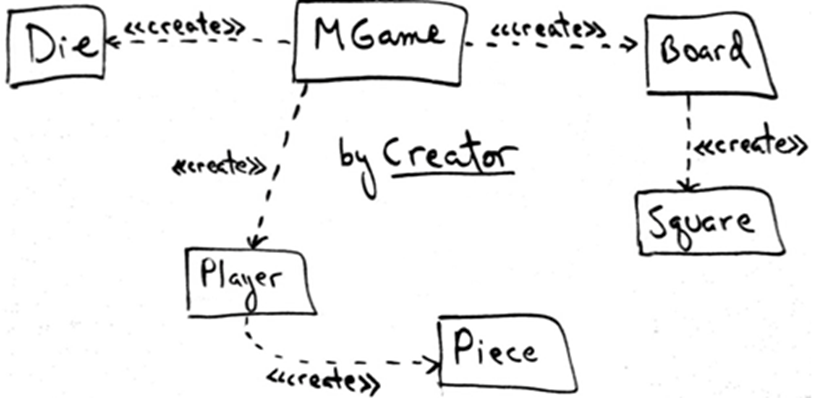 Die
<<create>>
MGame
<<create>>
Board
<<create>>
by Creator
<<create>>
Square
Player
Piece
<<create>>